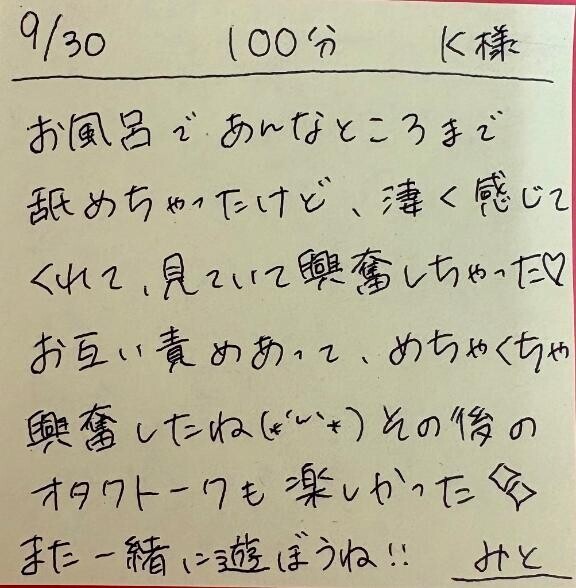 9/30 100分 K様
お風呂であんなところまで
舐めちゃったけど、凄く感じて
くれて、見ていて興奮しちゃった♡
お互い責めあって、めちゃくちゃ
興奮したね(*'ω'*)その後の
オタクトークも楽しかった
また一緒に遊ぼうね!! みと